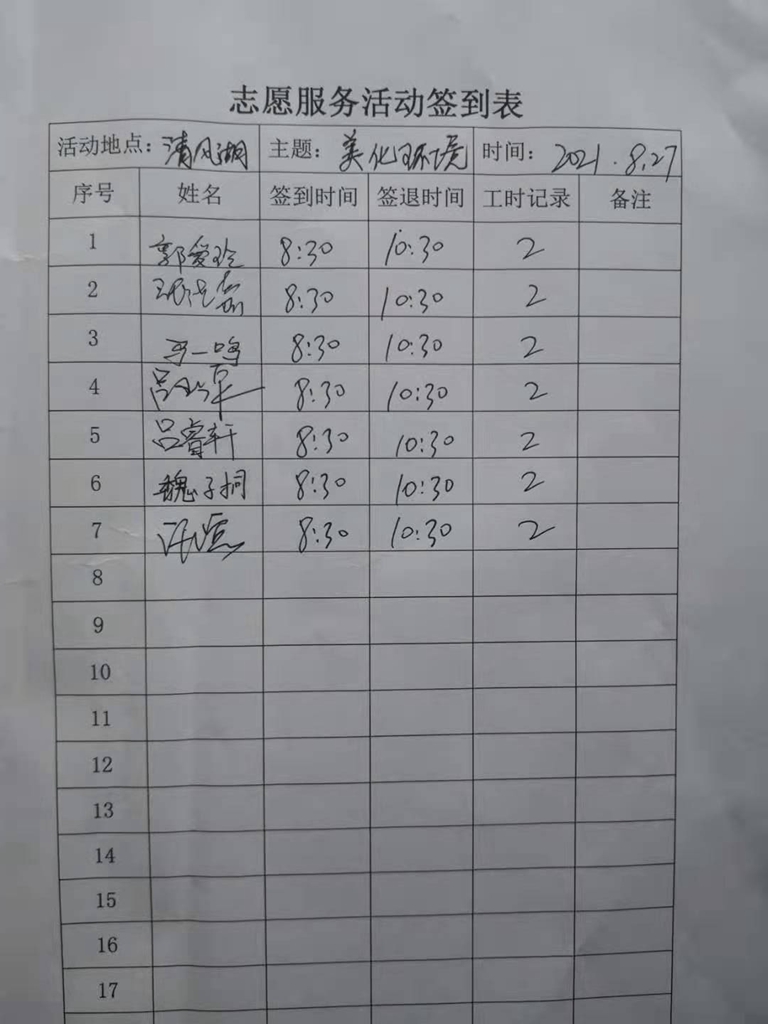 志愿服务活动签到表
活动地点：清风湖 主题：美化环境 时间：2021.8.27
序号 姓名 签到时间 签退时间 工时记录 备注
1 郭爱玲 8:30 10:30 2
2 8:30 10:30 2
3 于一鸣 8:30 10:30 2
4 8:30 10:30 2
5 吕睿轩 8:30 10:30 2
6 魏子桐 8:30 10:30 2
7 8:30 10:30 2
8
9
10
11
12
13
14
15
16
17